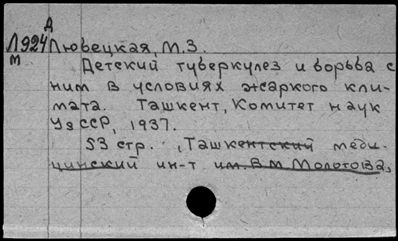 Д
Л924 Любецкая, М.З.
М
Детский туберкулез и борьба с
ним в условиях жаркого кли-
мата. Ташкент, Комитет наук
УзССР, 1937.
53 стр. , Ташкентский меди-
цинский ин-т им. В М Молотова,